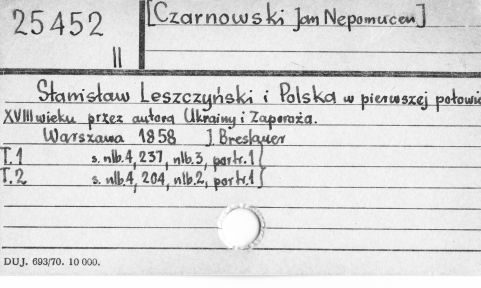 25452
II
[Czarnowski Jan Nepomucen]
Stanisław Leszczyński i Polska w pierwszej połowie
XVIII wieku przez autora Ukrainy i Zaporoża.
Warszawa 1858 J. Breslauer
T.1 s. nlb.4, 237, nlb.3, portr.1
T.2 s. nlb.4, 204, nlb.2, portr.1
DUJ. 693/70. 10 000.